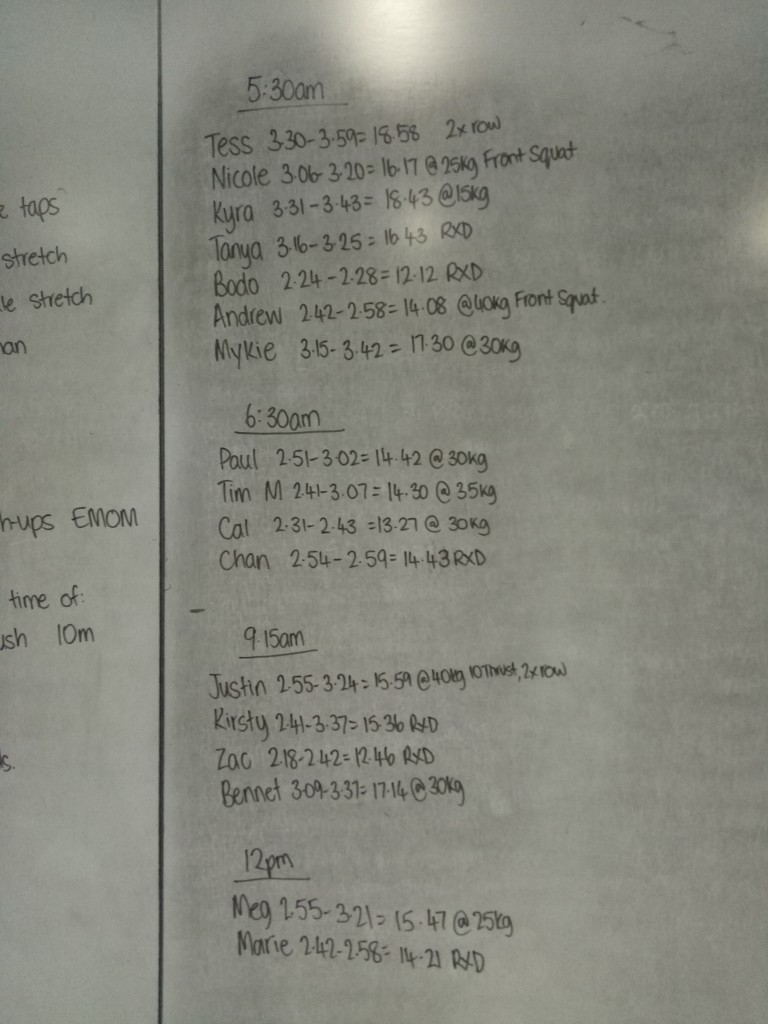 e taps
stretch
le stretch
an
h-ups EMOM
time of:
ush 10m
s.
5:30am
Tess 3.30-3.59=18.58 2x row
Nicole 3.06-3.20=16.17 @25kg Front Squat
Kyra 3.31-3.43= 18.43 @15kg
Tanya 3.16-3.25=16.43 RXD
Bodo 2.24-2.28=12.12 RXD
Andrew 2.42-2.58=14.08 @40kg Front Squat.
Mykie 3.15-3.42= 17.30 @30kg
6:30am
Paul 2.51-3.02=14.42 @30kg
Tim M 2.41-3.07=14.30 @35kg
Cal 2.31-2.43 =13.27 @ 30kg
Chan 2.54-2.59=14.43 RXD
9.15am
Justin 2.55-3.24=15.59 @40kg 10Thrust, 2x row
Kirsty 2.41-3.37=15.36 RXD
Zac 2.18-2.42=12.46 RXD
Bennet 3.09-3.37=17.14 @30kg
12pm
Meg 2.55-3.21= 15.47 @25kg
Marie 2.42-2.58= 14.21 RXD